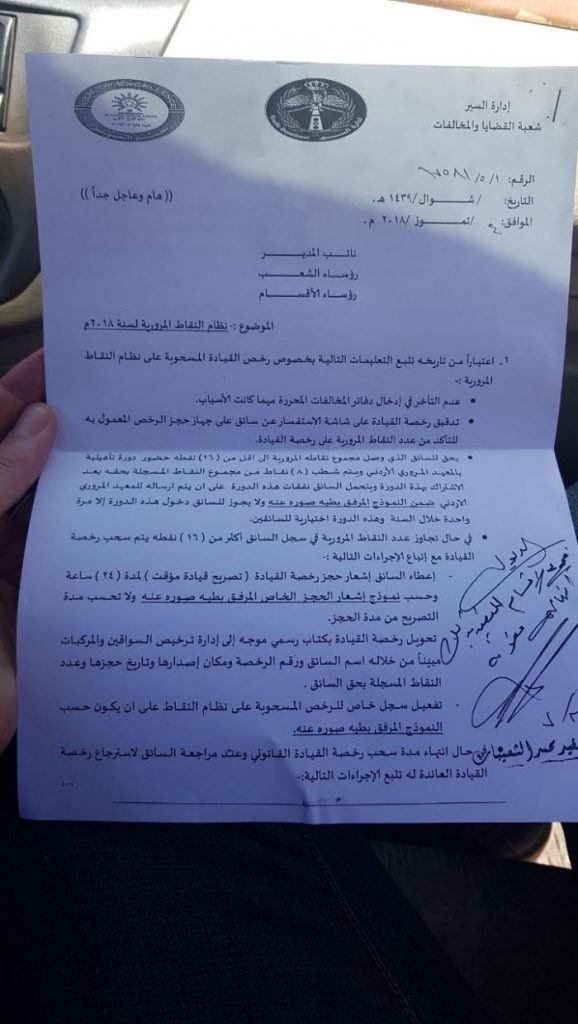 إدارة السير
شعبة القضايا والمخالفات
الرقم: ١/ ٥/
التاريخ: /شوال/١٤٣٩ هـ.
((هام وعاجل جداً))
الموافق: /تموز /٢٠١٨ م.
نائب المدير
رؤساء الشعب
رؤساء الأقسام
الموضوع :- نظام النقاط المرورية لسنة ٢٠١٨م
١. اعتباراً من تاريخه تتبع التعليمات التالية بخصوص رخص القيادة المسحوبة على نظام النقاط
المرورية :-
• عدم التأخر في إدخال دفاتر المخالفات المحررة مهما كانت الأسباب.
• تدقيق رخصة القيادة على شاشة الاستفسار عن سائق على جهاز حجز الرخص المعمول به
للتأكد من عدد النقاط المرورية على رخصة القيادة.
• يحق للسائق الذي وصل مجموع نقاطه المرورية الى اقل من (١٦) نقطه حضور دورة تأهيلية
بالمعهد المروري الأردني ويتم شطب (٨) نقاط من مجموع النقاط المسجلة بحقه بعد
الاشتراك بهذة الدورة ويتحمل السائق نفقات هذه الدورة على ان يتم ارساله للمعهد المروري
الأردني ضمن النموذج المرفق بطيه صوره عنه ولا يجوز للسائق دخول هذه الدورة إلا مرة
واحدة خلال السنة وهذه الدورة اختيارية للسائقين.
• في حال تجاوز عدد النقاط المرورية في سجل السائق أكثر من (١٦) نقطه يتم سحب رخصة
القيادة مع إتباع الإجراءات التالية :-
- إعطاء السائق إشعار حجز رخصة القيادة ( تصريح قيادة مؤقت ) لمدة (٢٤) ساعة
وحسب نموذج إشعار الحجز الخاص المرفق بطيه صوره عنه ولا تحسب مدة
التصريح من مدة الحجز.
- تحويل رخصة القيادة بكتاب رسمي موجه إلى إدارة ترخيص السواقين والمركبات
مبيناً من خلاله اسم السائق ورقم الرخصة ومكان إصدارها وتاريخ حجزها وعدد
النقاط المسجلة بحق السائق .
- تفعيل سجل خاص للرخص المسحوبة على نظام النقاط على ان يكون حسب
النموذج المرفق بطيه صوره عنه.
في حال انتهاء مدة سحب رخصة القيادة القانوني وعند مراجعة السائق لاسترجاع رخصة
القيادة العائدة له تتبع الإجراءات التالية:-